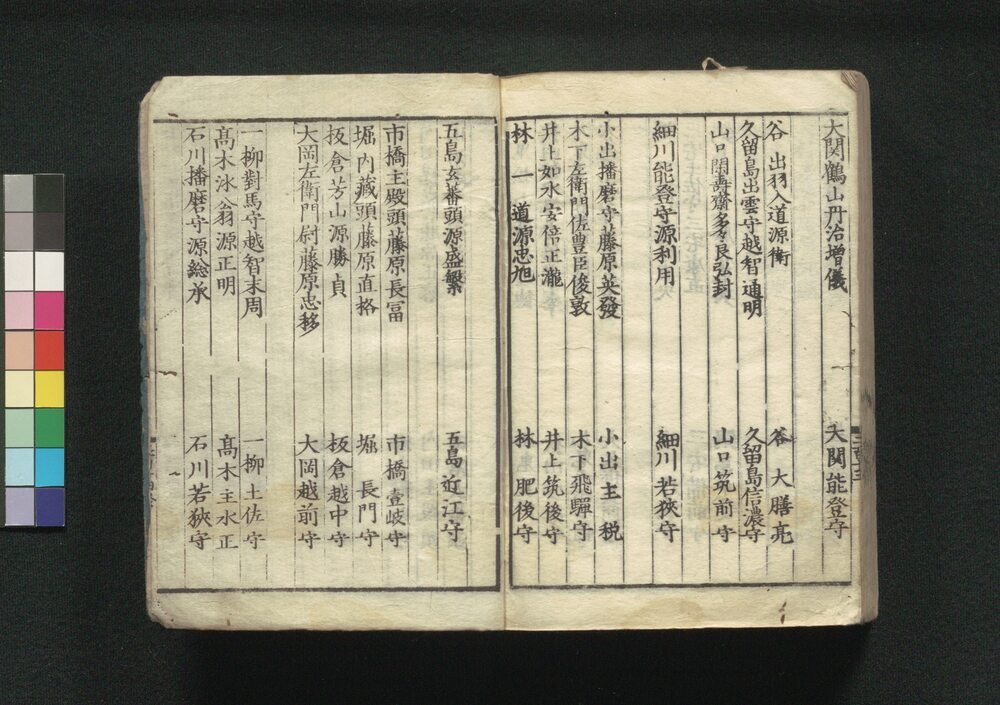 大関鶴山丹治増儀 大関能登守
谷 出羽入道源衛 谷 大膳亮
久留島出雲守越智通明 久留島信濃守
山口閑壽齋多々良弘封 山口筑前守
細川能登守源利用 細川若狹守
小出播磨守藤原英發 小出主税
木下左衛門佐豊臣俊敦 木下飛騨守
井上如水安倍正瀧 井上筑後守
林 一 道源忠旭 林 肥後守
五島玄蕃頭源盛繁 五島近江守
市橋主殿頭藤原長冨 市橋壹岐守
堀 内藏頭藤原直格 堀 長門守
板倉芳山源勝貞 板倉越中守
大岡左衛門尉藤原忠移 大岡越前守
一柳對馬守越智末周 一柳土佐守
髙木氷翁源正明 髙木主水正
石川播磨守源総承 石川若狹守